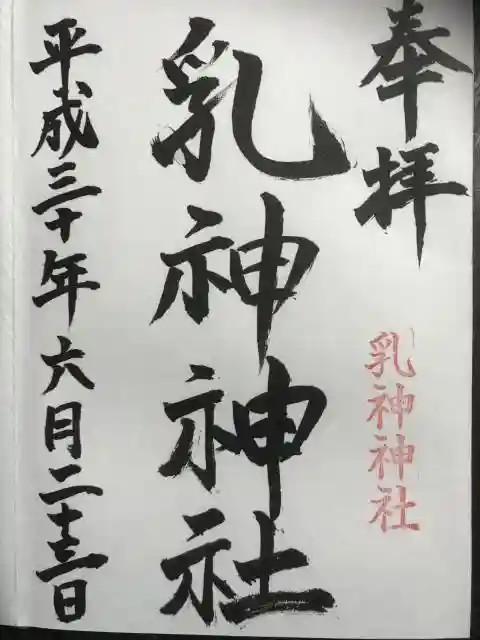 奉拝
乳神神社
乳神神社
平成三十年六月二十三日